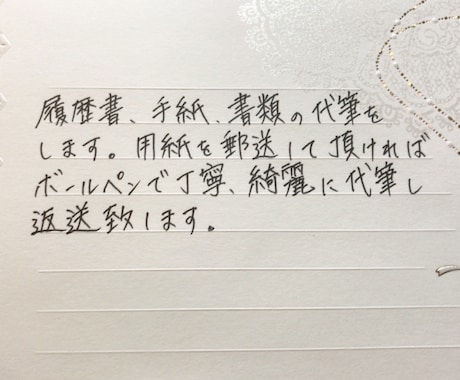 履歴書、手紙、書類の代筆を
します。用紙を郵送して頂ければ
ボールペンで丁寧、綺麗に代筆し
返送致します。